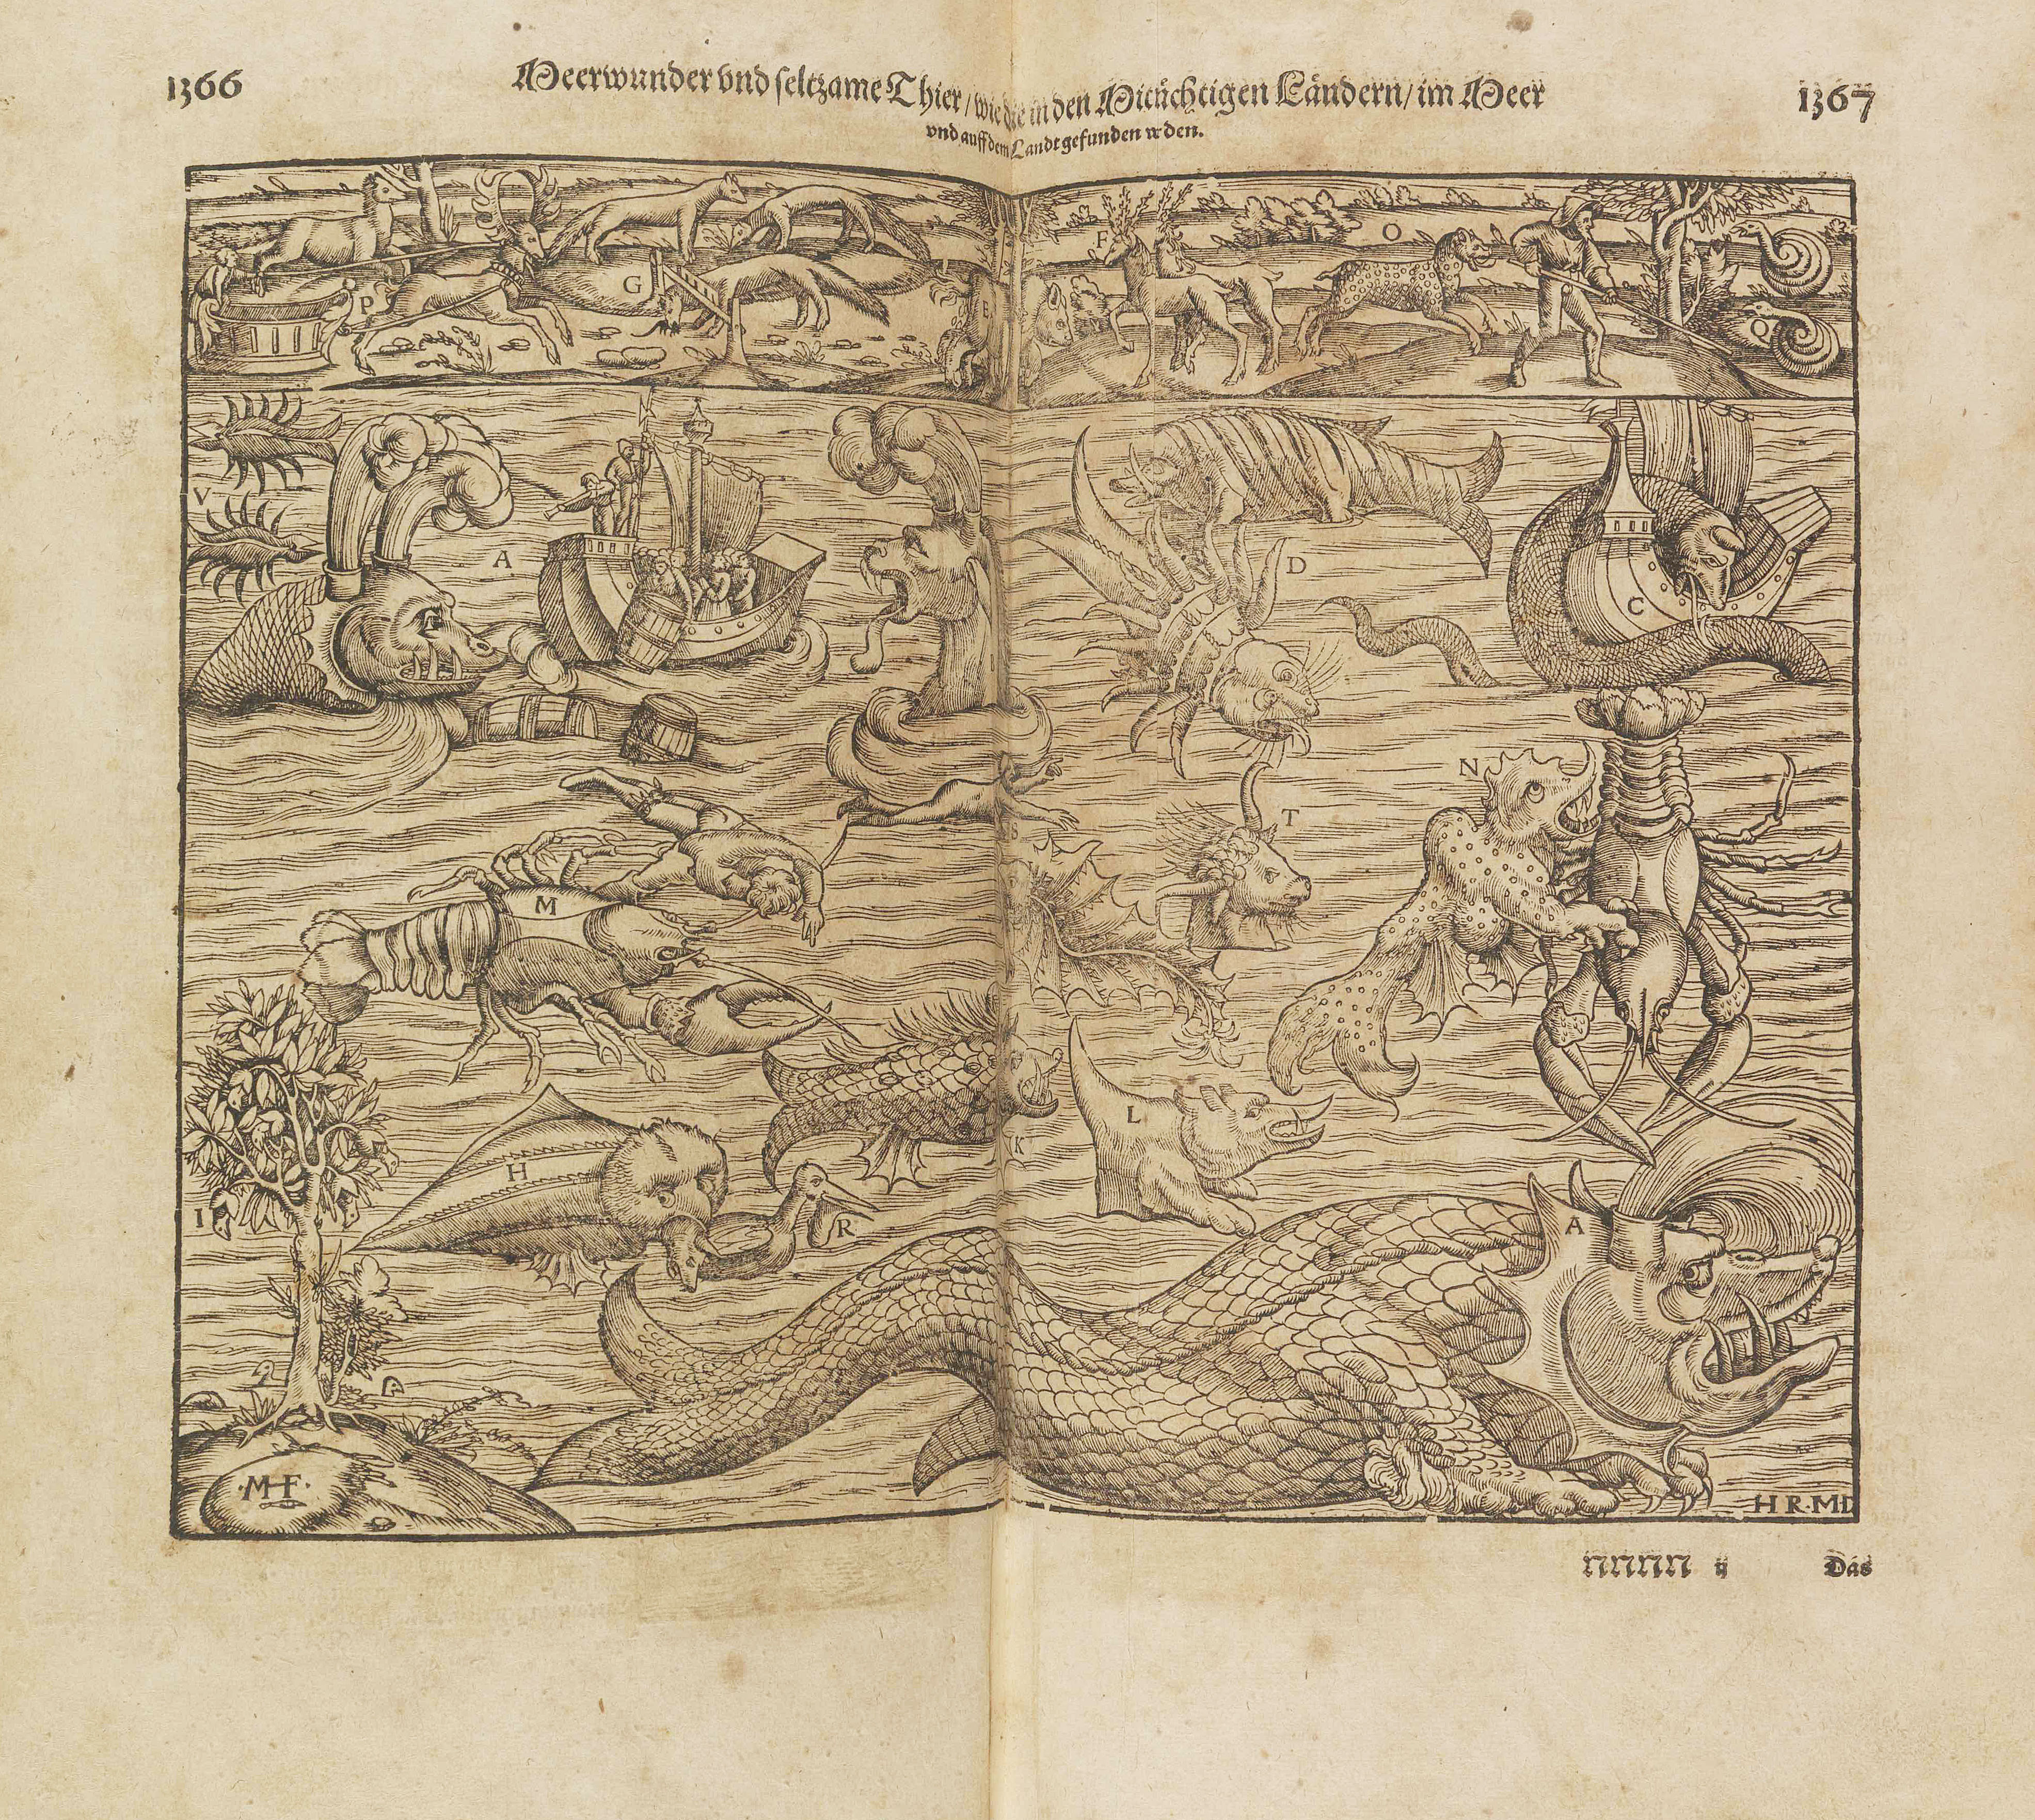 1366
Meerwunder vnd seltzame Thier / wie die in den Mitnächtigen Ländern / im Meer
1367
vnd auff dem Landt gefunden werden.
P
G
E
F
O
Q
V
A
D
C
N
T
S
M
H
K
L
I
R
A
M·F·
H R·MD
nnnn ij
Das